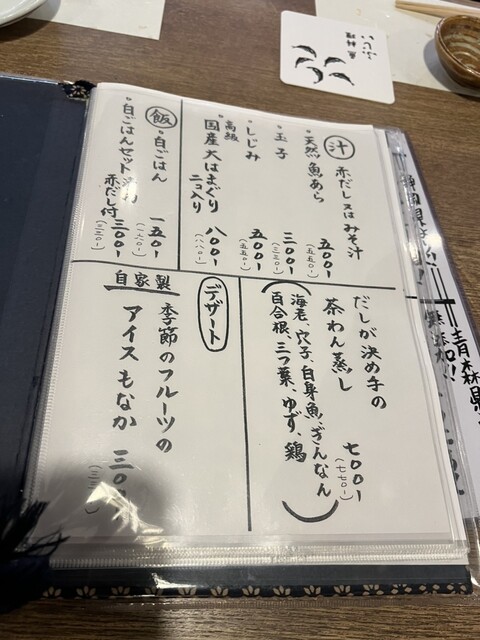 汁
赤だし又はみそ汁
天然魚あら
五〇〇-
(五五〇-)
玉子
三〇〇-
(三三〇-)
しじみ
五〇〇-
高級
国産大はまぐり
二コ入り
八〇〇-
(八八〇-)
飯
白ごはん
一五〇-
(一七〇-)
白ごはんセット
赤だし付
三〇〇-
(三三〇-)
だしが決め手の
茶わん蒸し
七〇〇-
(七七〇-)
(海老、穴子、白身魚、ぎんなん
百合根、三つ葉、ゆず、鶏)
デザート
自家製
季節のフルーツの
アイスもなか
三〇
青森県